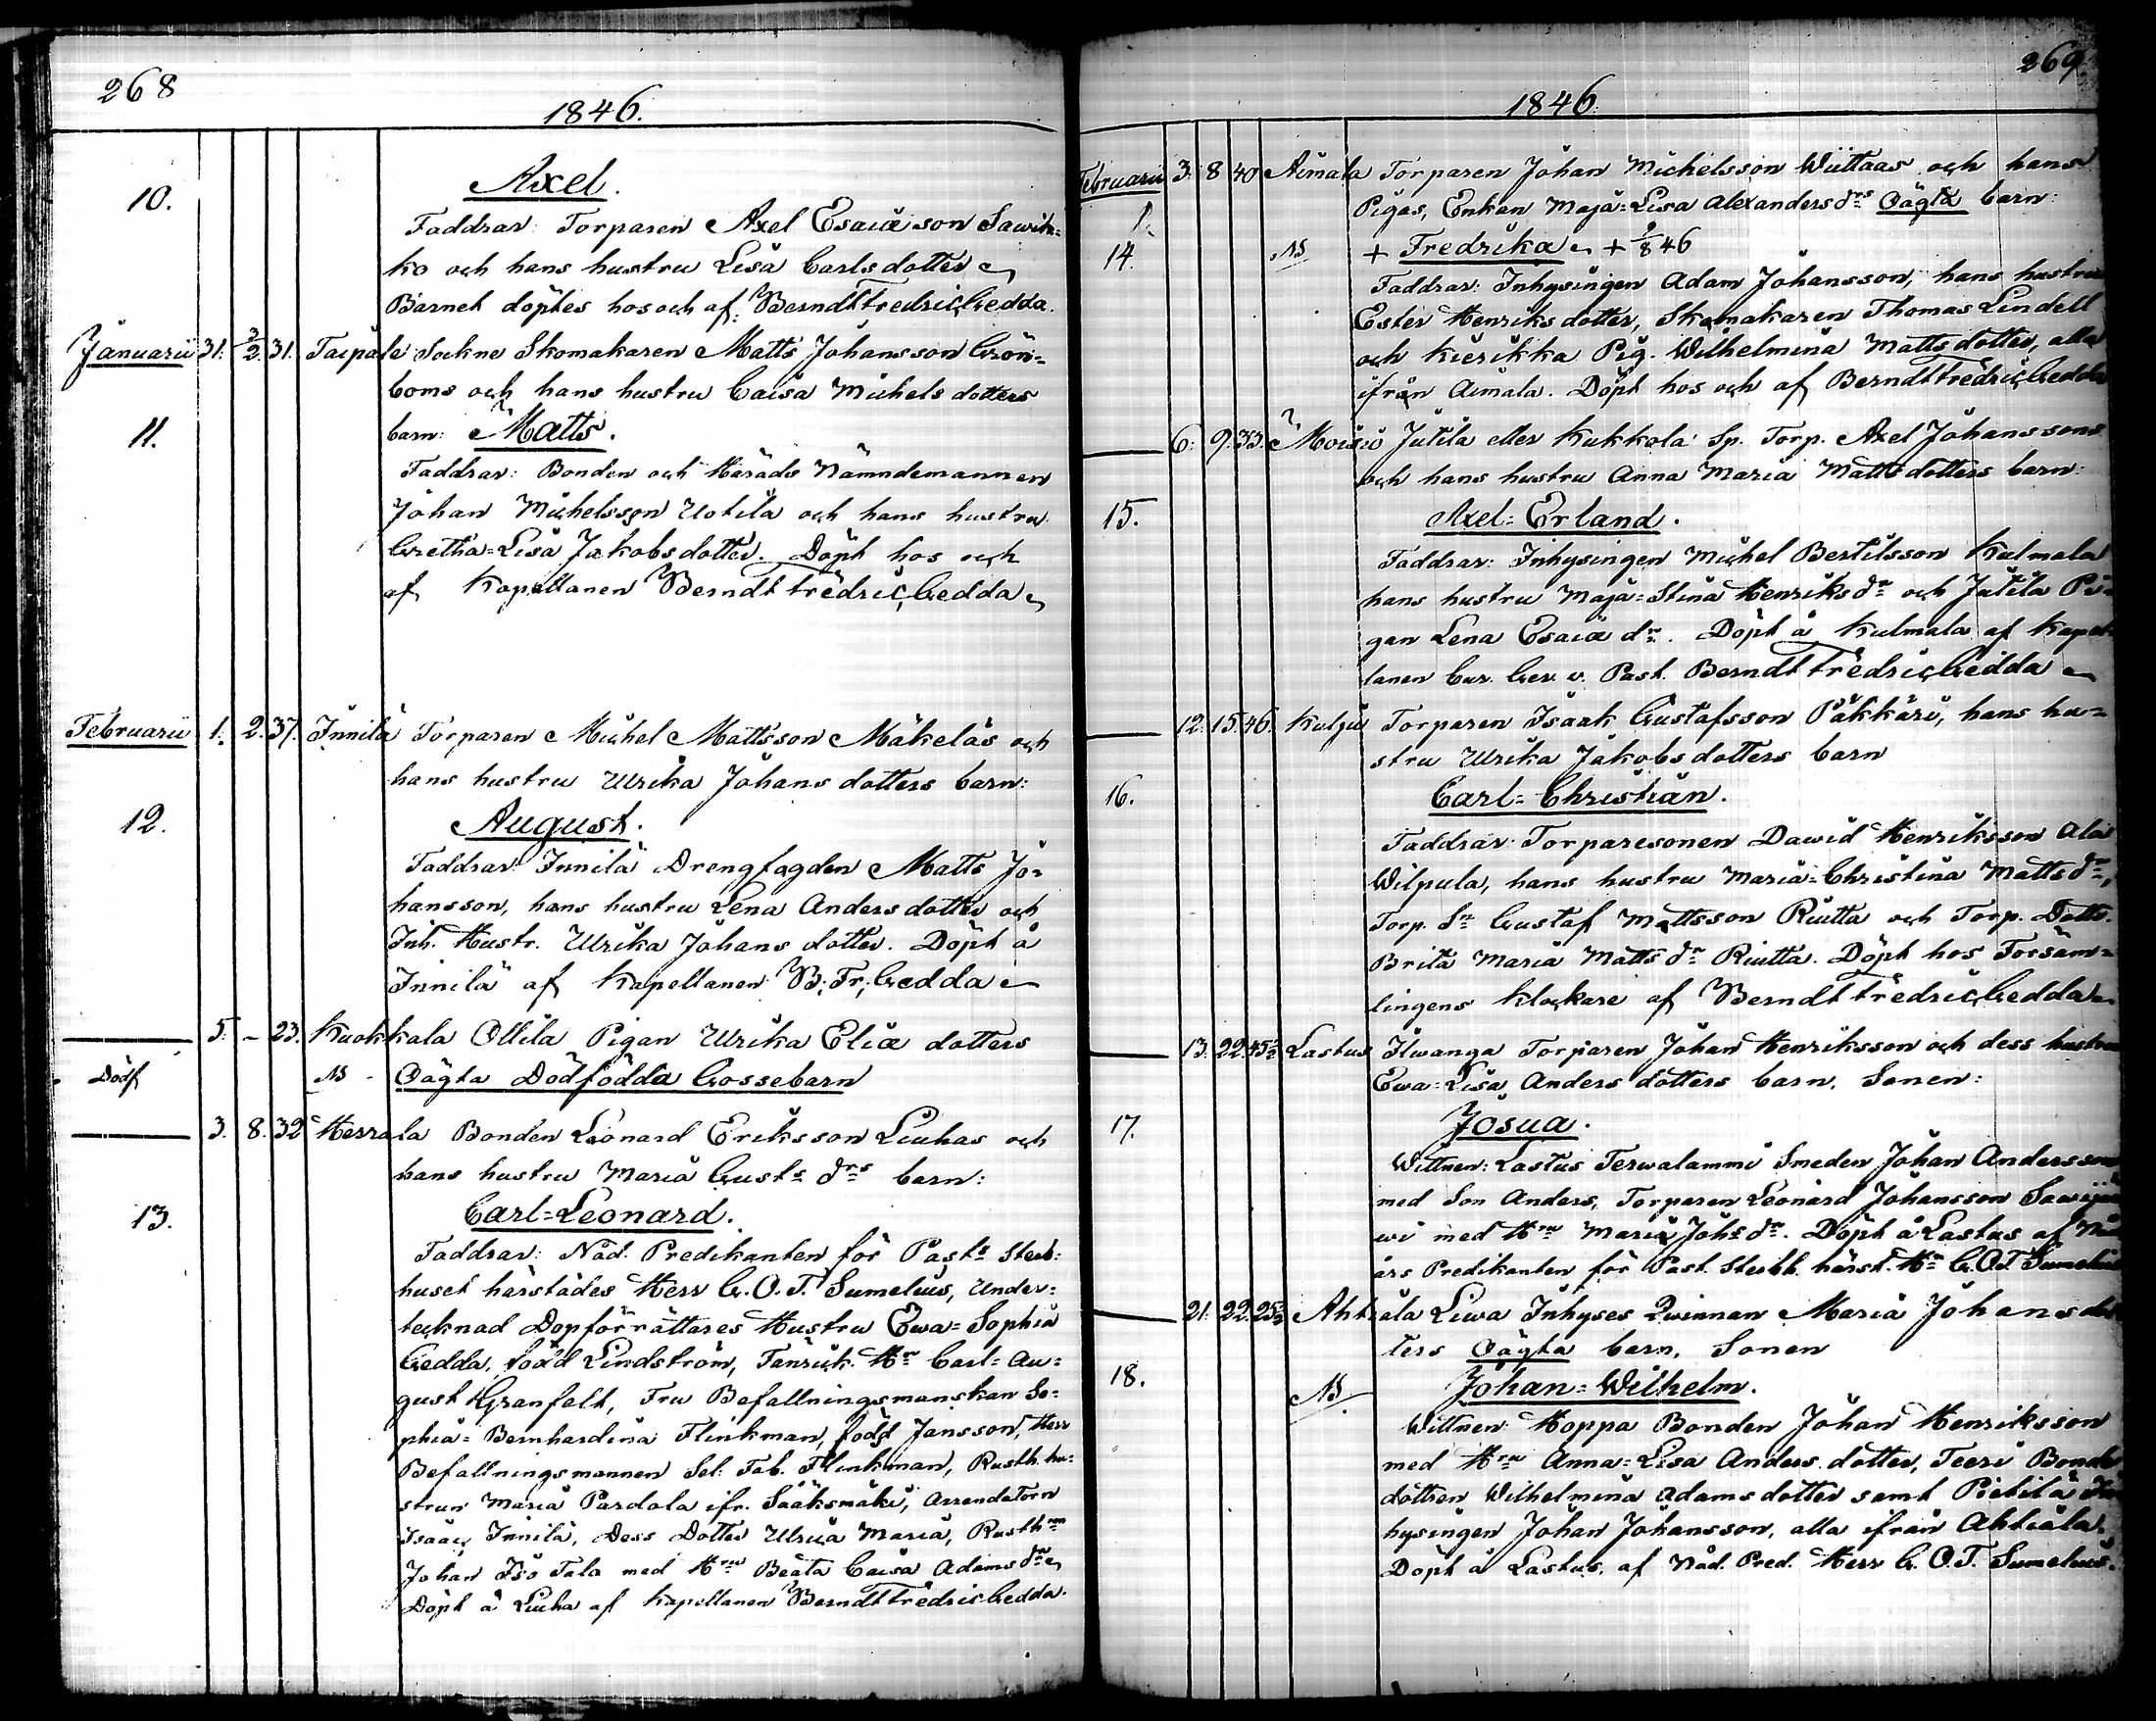 268
1846.
10.
Axel.
Faddrar: Torparen Axel Esaiæ son Sawik=
ko och hans hustru Lisa Carlsdotter
Barnet döptes hos och af: Berndt Fredric Gedda.
Januarii 31. 3/2. 31. Taipale Sockne Skomakaren Matts Johansson Grön=
boms och hans hustru Caisa Michels dotters
11.
barn: Matts.
Faddrar: Bonden och Härads Nämndemannen
Johan Michelsson Uotila och hans hustru
Gretha=Lisa Jakobsdotter. Döpt hos och
af Kapellanen Berndt Fredric Gedda
Februarii 1. 2. 37. Innilä Torparen Michel Mattsson Mäkeläs och
hans hustru Ulrika Johans dotters barn:
12.
August.
Faddrar: Innilä Drengfogden Matts Jo=
hansson, hans hustru Lena Anders dotter och
Inh. Hustr. Ulrika Johans dotter. Döpt å
Innilä af Kapellanen B: Fr: Gedda
5. – 23. Kuokkala Ollila Pigan Ulrika Eliæ dotters
Dödf NB Oägta Dödfödda Gossebarn
3. 8. 32 Herrala Bonden Leonard Eriksson Liuhas och
hans hustru Maria Gusts drs barn:
13.
Carl=Leonard.
Faddrar: Nåd. Predikanten för Past: Sterb=
huset härstädes Herr G. O. T. Sumelius, Under=
tecknad Dopförrättares Hustru Ewa=Sophia
Gedda, född Lindström, Fänrick. Hr Carl=Au=
gust Granfelt, Fru Befallningsmanskan So=
phia=Bernhardina Flinkman, född Jansson, Herr
Befallningsmannen Sel: Fab. Flinkman, Rusth. hu=
strun Maria Pardala ifr. Sääksmäki, Arrendatorn
Isaac Innilä, Dess Dotter Ulrica Maria, Rusth
Johan Iso Tala med Hru Beata Caisa Adams dr
Döpt å Liuha af Kapellanen Berndt Fredric Gedda.
269.
1846.
Februarii 3. 8 40 Aimala Torparen Johan Michelsson Wiittaas och hans
Pigas, Enkan Maja=Lisa Alexanders drs Oägta barn:
14. NB + Fredrika + 9/8 46
Faddrar: Inhysingen Adam Johansson, hans hustru
Ester Henriksdotter, Skomakaren Thomas Lindell
och Kierikka Pig. Wilhelmina Mattsdotter, alla
ifrån Aimala. Döpt hos och af Berndt Fredric Gedda
6. 9. 33. Moisio Jutila eller Kukkola Sp. Torp. Axel Johanssons
och hans hustru Anna Maria Mattsdotters barn:
15.
Axel=Erland.
Faddrar: Inhysingen Michel Bertilsson Kulmala
hans hustru Maja=Stina Henriks dr och Jutila Pi=
gan Lena Esaiæ dr. Döpt å Kulmala af Kapel
lanen Cur. Ger. v. Past. Berndt Fredric Gedda
12. 15. 46. Kulju Torparen Isaak Gustafsson Päkkäri, hans hu=
stru Ulrika Jakobsdotters barn
16.
Carl=Christian.
Faddrar: Torparesonen Dawid Henriksson Ala
Wilpula, hans hustru Maria=Christina Matts dr,
Torp. Sn Gustaf Mattsson Riutta och Torp. Dotte.
Brita Maria Matts dr Riutta. Döpt hos Försam=
lingens Klockare af Berndt Fredric Gedda
13. 22. 45 Lastus Ilwanga Torparen Johan Henriksson och dess hustru
Ewa=Lisa Anders dotters barn, Sonen:
17.
Josua.
Wittnen: Lastus Terwalammi Smeden Johan Andersson
med Son Anders, Torparen Leonard Johansson
wi med Hru Maria Johs dr. Döpt å Lastus af
års Predikanten för Past. Sterbh. härst. Hr G. O. T. Sumelius
21. 22. 25 Ahtiala Liwa Inhyses Qwinnan Maria Johansdot
ters Oägta barn, Sonen
18. NB
Johan=Wilhelm.
Wittnen: Hoppa Bonden Johan Henriksson
med Hru Anna=Lisa Anders dotter, Teeri Bonde
dottren Wilhelmina Adams dotter samt Pietilä In
hysingen Johan Johansson, alla ifrån Ahtiala.
Döpt å Lastus, af Nåd. Pred. Herr G. O. T. Sumelius.